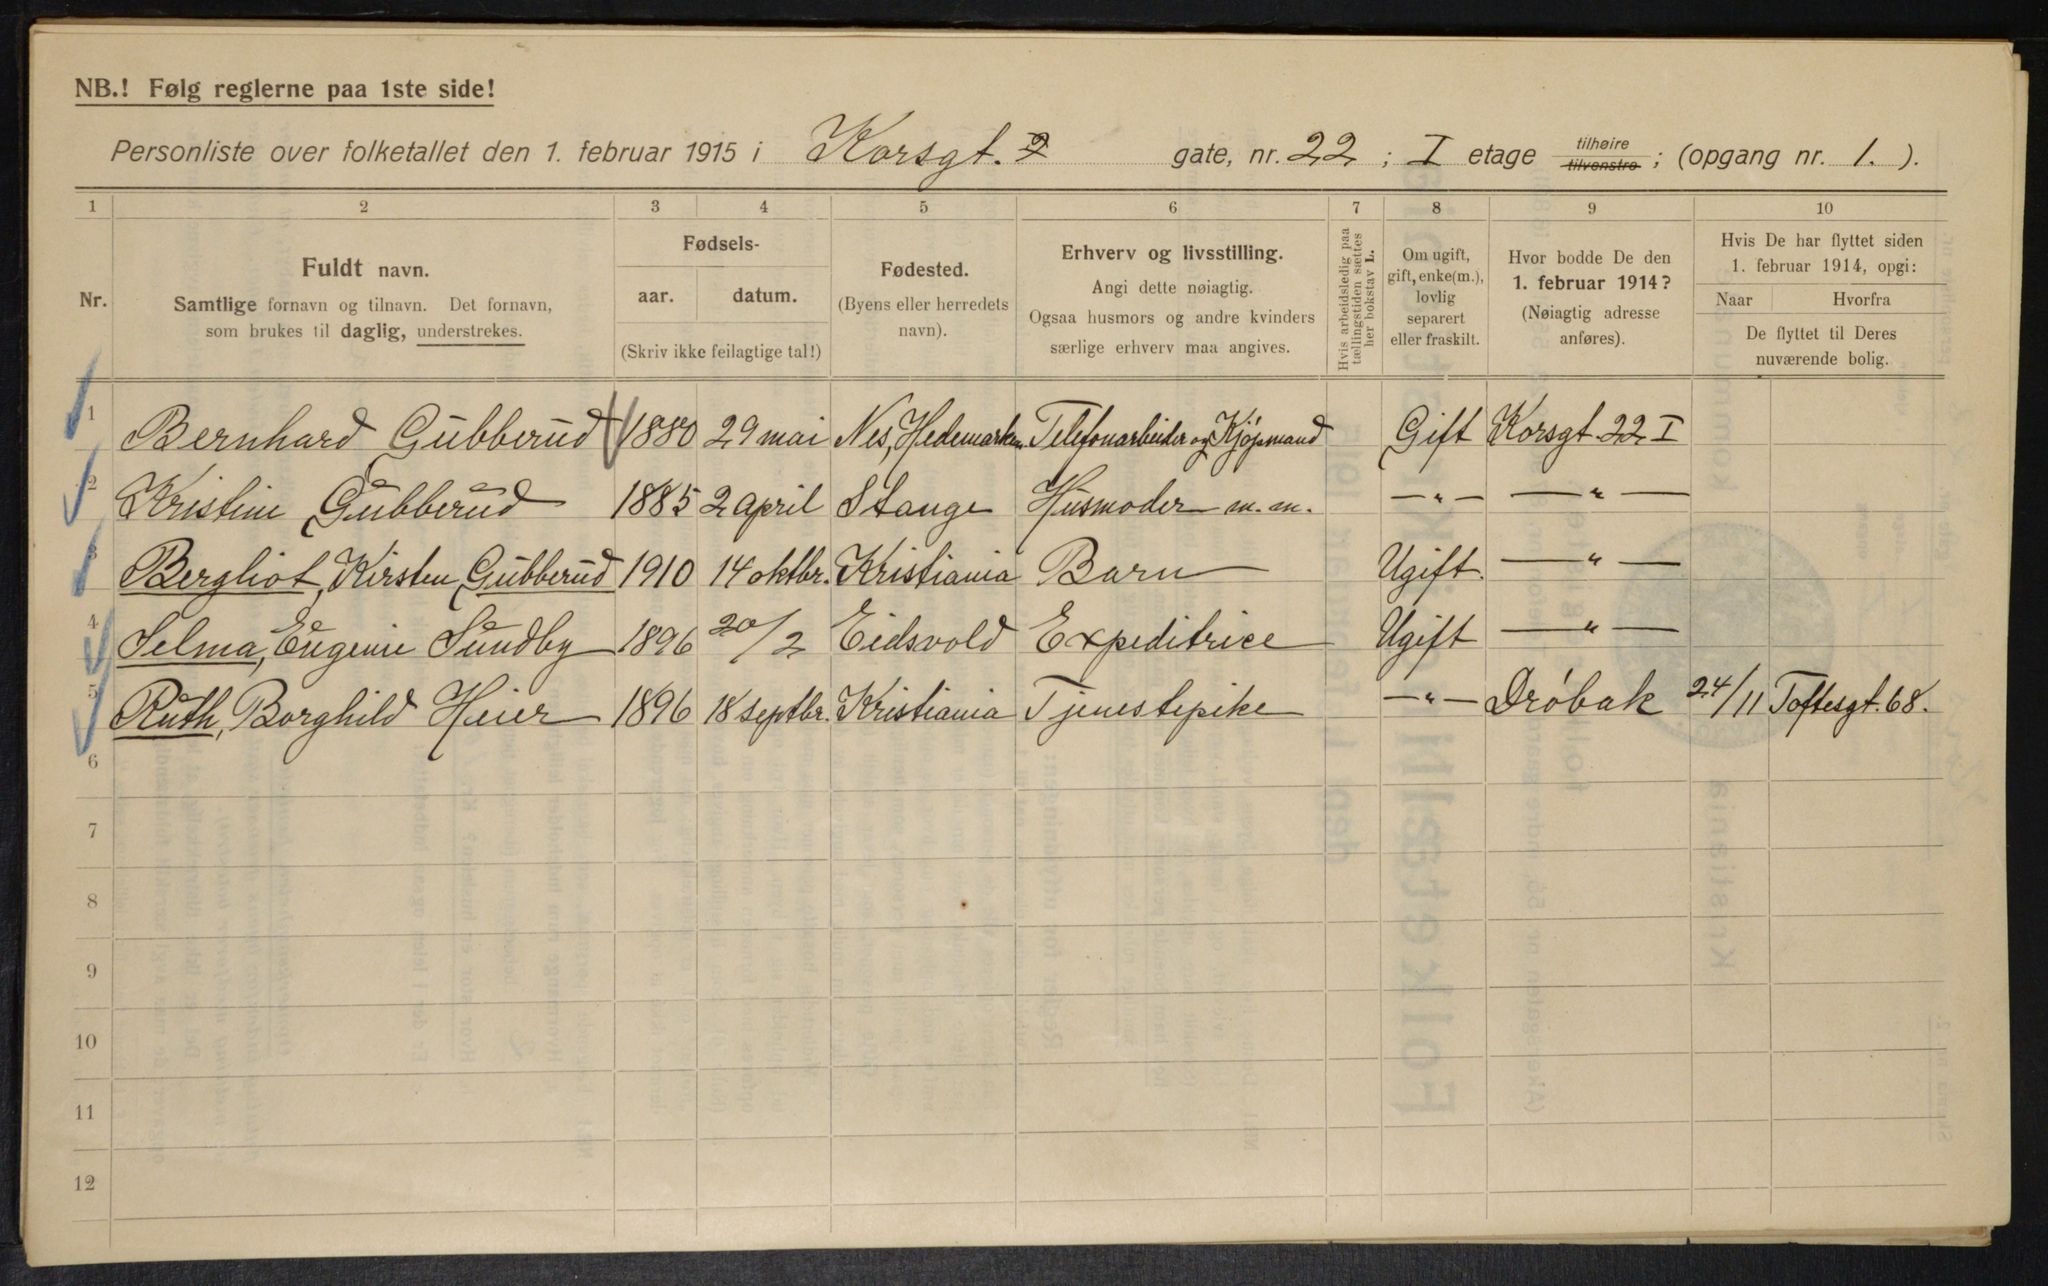 NB.! Følg reglerne paa 1ste side!
Personliste over folketallet den 1. februar 1915 i Korsgt. gate, nr. 22 ; I etage tilhøire tilvenstre ; (opgang nr. 1. ).
1 2 3 4 5 6 7 8 9 10
Nr.
Fuldt navn.
Samtlige fornavn og tilnavn. Det fornavn,
som brukes til daglig, understrekes.
Fødsels-
aar. datum.
(Skriv ikke feilagtige tal!)
Fødested.
(Byens eller herredets
navn).
Erhverv og livsstilling.
Angi dette nøiagtig.
Ogsaa husmors og andre kvinders
særlige erhverv maa angives.
Hvis arbeidsledig paa
tællingstiden sættes
her bokstav L.
Om ugift,
gift, enke(m.),
lovlig
separert
eller fraskilt.
Hvor bodde De den
1. februar 1914?
(Nøiagtig adresse
anføres).
Hvis De har flyttet siden
1. februar 1914, opgi:
Naar Hvorfra
De flyttet til Deres
nuværende bolig.
1 Bernhard Gubberud 1880 29 mai Nes, Hedemarken Telefonarbeider og Kjøpmand Gift Korsgt. 22 I
2 Kristine Gubberud 1885 2 april Stange Husmoder m. m. —„— —„—
3 Bergliot, Kirsten Gubberud 1910 14 oktbr. Kristiania Barn Ugift. —„—
4 Selma, Eugenie Sundby 1896 20/2 Eidsvold Expeditrice Ugift —„—
5 Ruth, Borghild Heier 1896 18 septbr. Kristiania Tjenestepike —„— Drøbak 24/11 Toftesgt. 68.
6
7
8
9
10
11
12